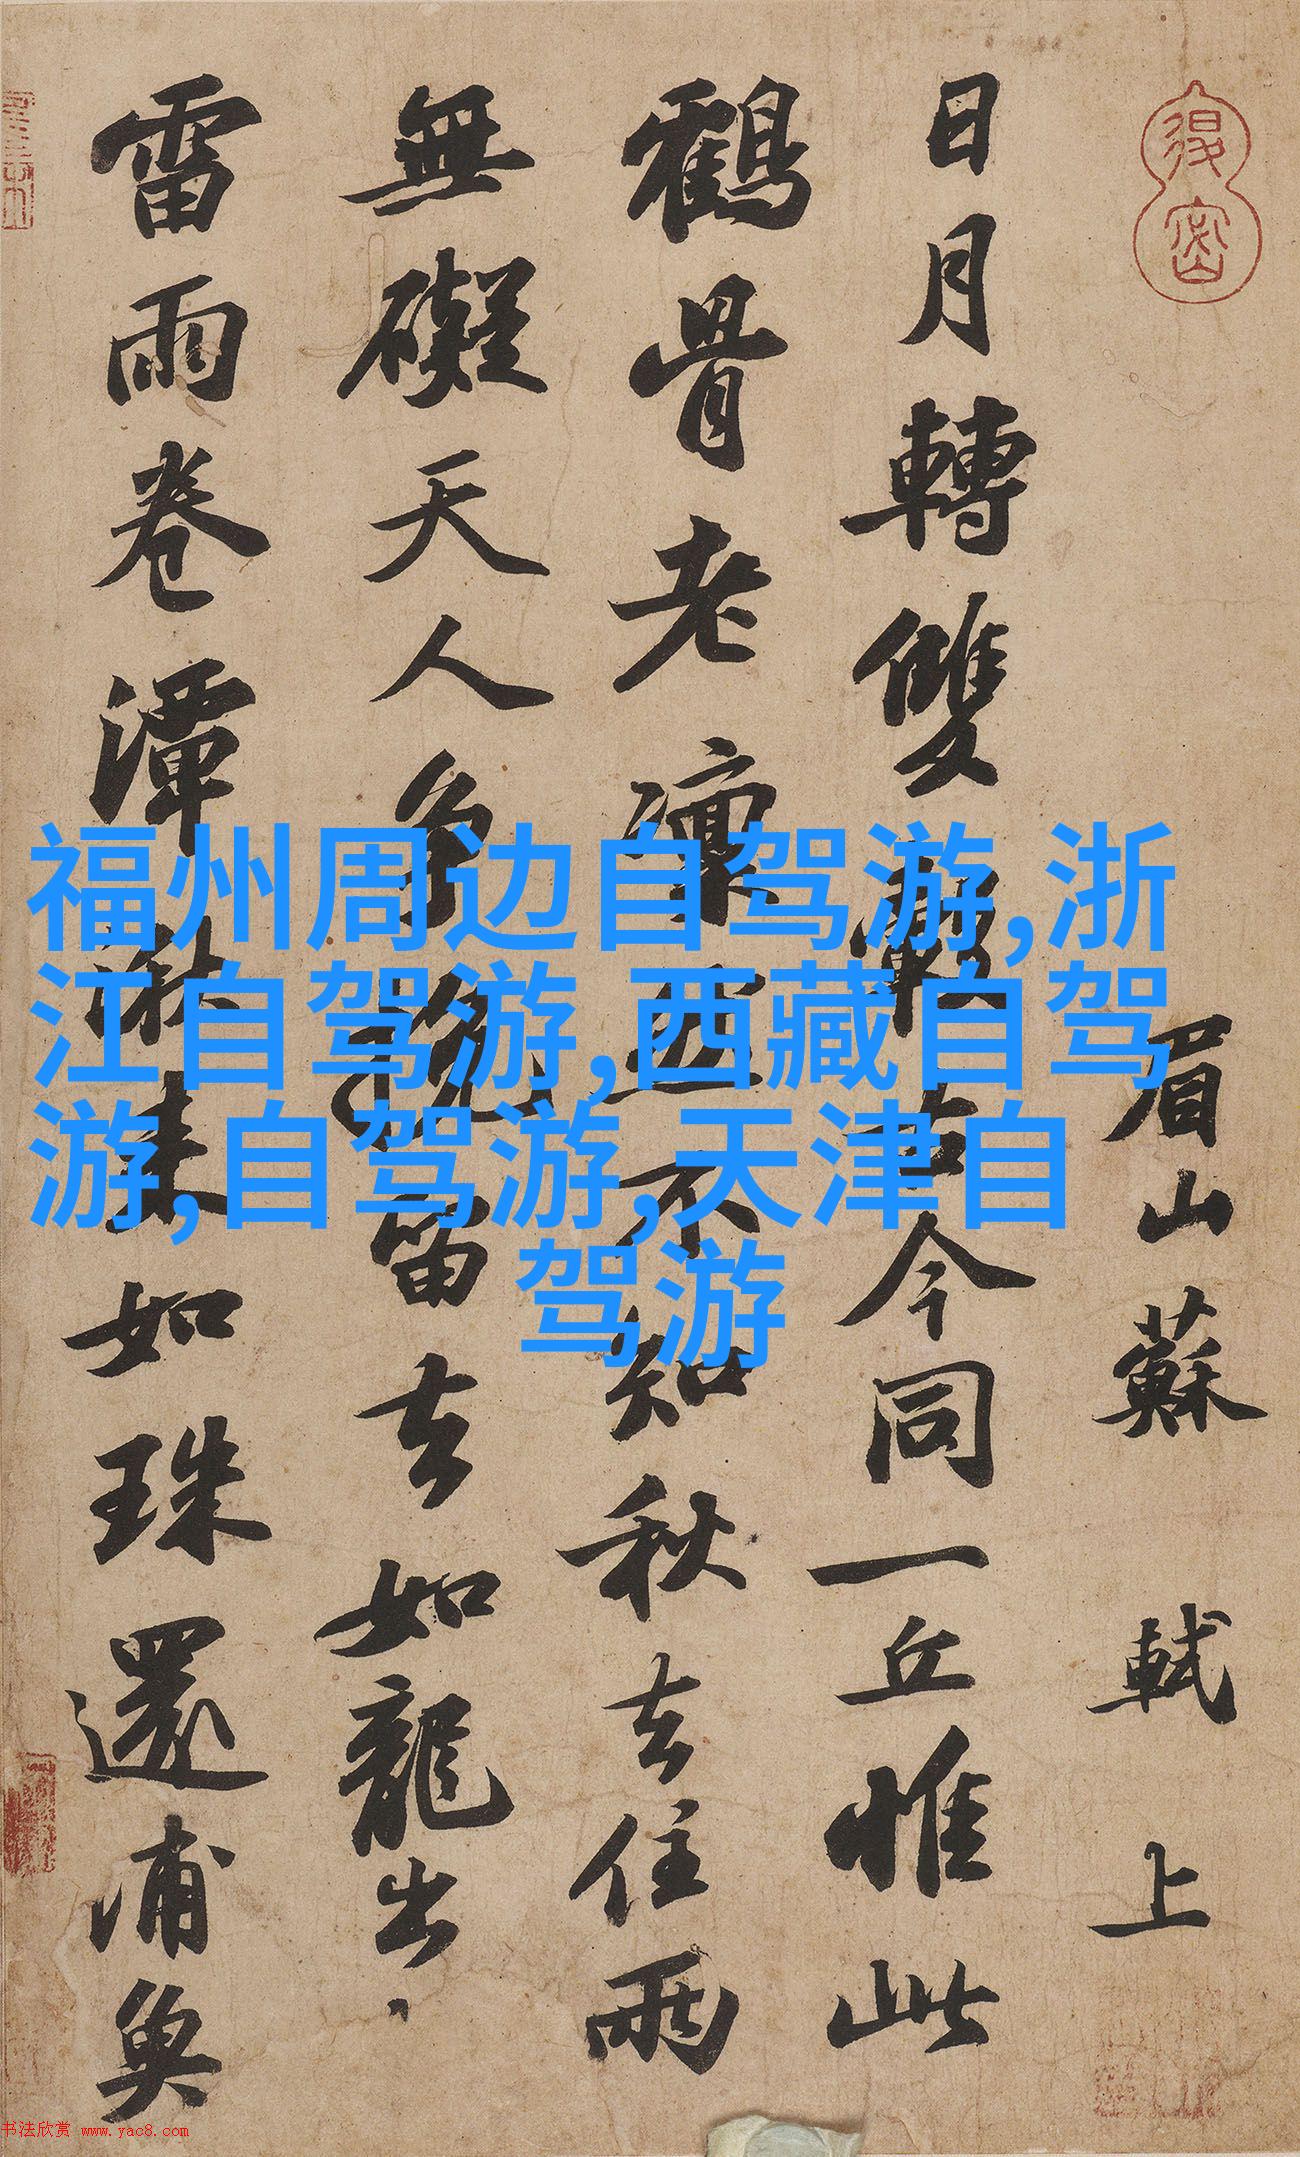 眉山蘇軾上
日月轉雙轂古今同一丘惟此
鶴骨老凜然不知秋去住兩
無礙天人争挽留去如龍出
雷雨卷潭湫来如珠還浦魚
福州周边自驾游,浙
江自驾游,西藏自驾
游,自驾游,天津自
驾游
书法欣赏 www.yac8.com